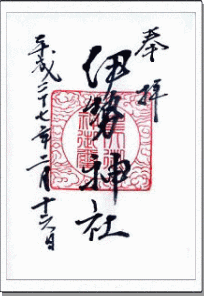 奉拝
伊勢神社
平成二十七年二月十六日